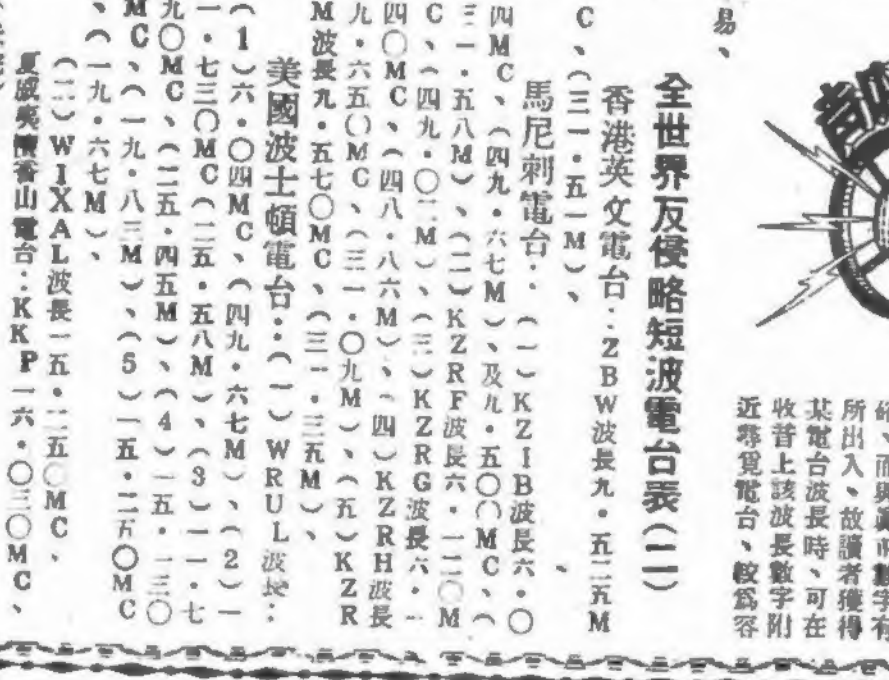 所出入、故讀者獲得
某電台波長時、可在
收音上該波長數字附
近尋覓電台、較爲容
易、
全世界反侵略短波電台表(二)
香港英文電台:ZBW波長九・五二五M
C、(三一・五一M)、
馬尼刺電台:(一)KZIB波長六・〇
四MC、(四九・六七M)、及九・五〇〇MC、(
三一・五八M)、(二)KZRF波長六・一二〇M
C、(四九・〇二M)、(三)KZRG波長六・一
四〇MC、(四八・八六M)、(四)KZRH波長
九・六五〇MC、(三一・〇九M)、(五)KZR
M波長九・五七〇MC、(三一・三五M)、
美國波士頓電台:(一)WRUL波長:
(1)六・〇四MC、(四九・六七M)、(2)一
一・七三〇MC(二五・五八M)、(3)一一・七
九〇MC、(二五・四五M)、(4)一五・一三〇
MC、(一九・八三M)、(5)一五・二五〇MC
、(一九・六七M)、
(二)WIXAL波長一五・二五〇MC、
夏威夷檀香山電台:KKP一六・〇三〇MC、